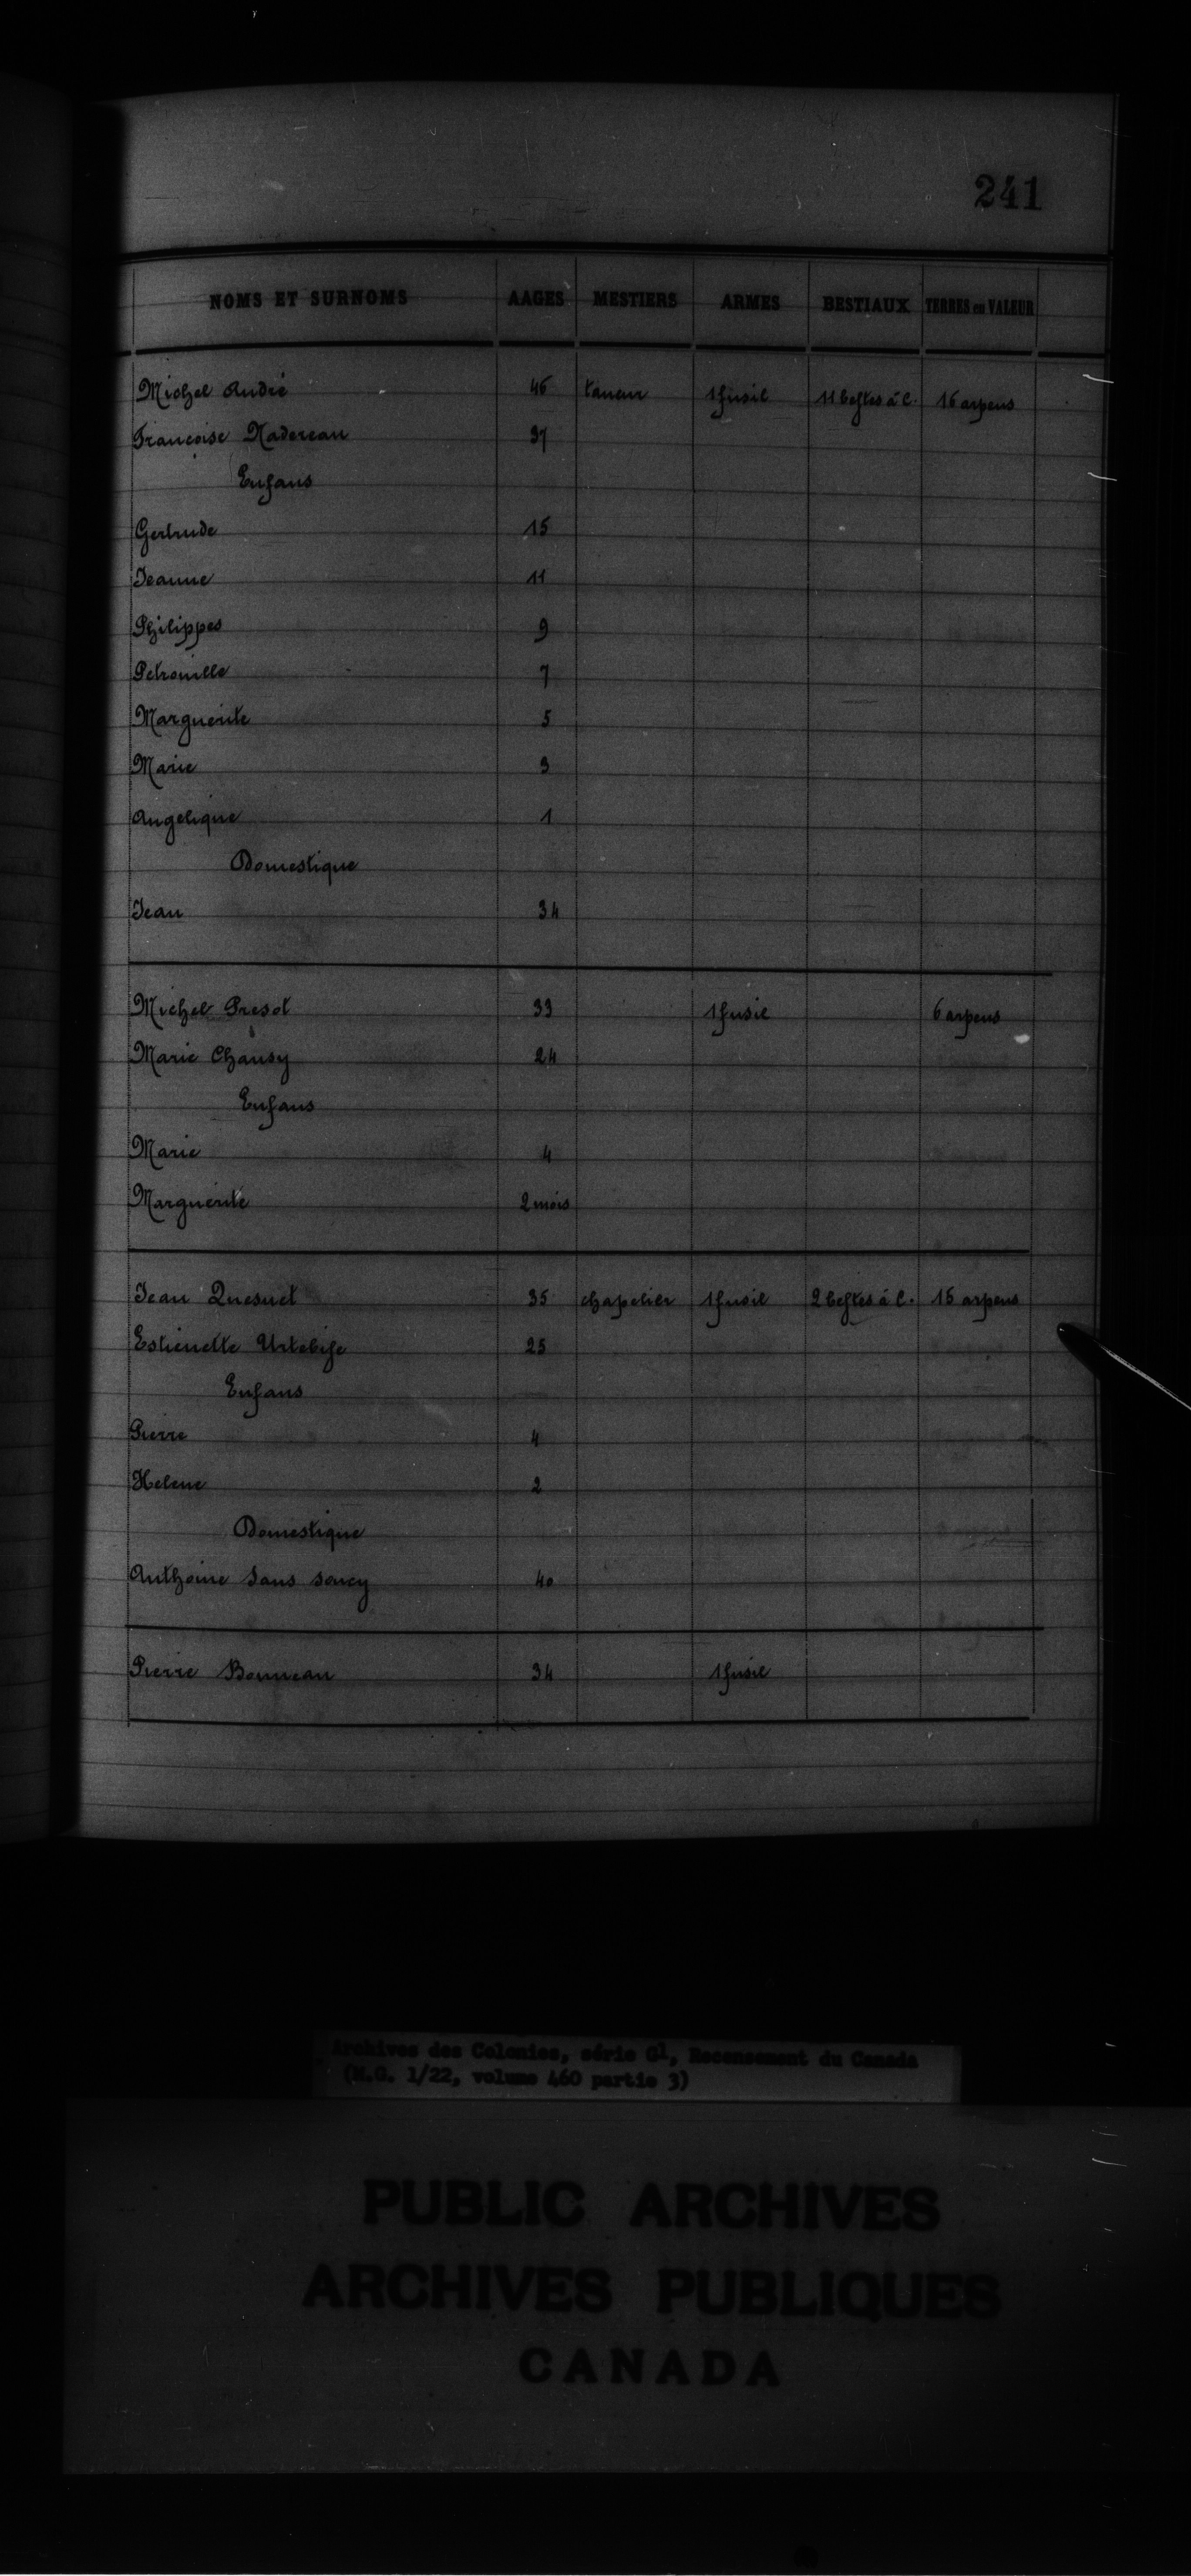 241
NOMS ET SURNOMS AAGES MESTIERS ARMES BESTIAUX TERRES en VALEUR
Michel André 46 taneur 1 fusil 11 bestes à c. 16 arpens
Françoise Nadereau 37
Enfans
Gertrude 15
Jeanne 11
Philippes 9
Petronille 7
Marguerite 5
Marie 3
Angelique 1
Domestique
Jean 34
Michel Presot 33 1 fusil 6 arpens
Marie Chausy 24
Enfans
Marie 4
Marguerite 2 mois
Jean Quesnet 35 chapelier 1 fusil 2 bestes à c. 16 arpens
Estienette Urtebise 25
Enfans
Pierre 4
Helene 2
Domestique
Anthoine Sans Soucy 40
Pierre Bonneau 34 1 fusil
Archives des Colonies, série G1, Recensement du Canada
(M.G. 1/22, volume 460 partie 3)
PUBLIC ARCHIVES
ARCHIVES PUBLIQUES
CANADA